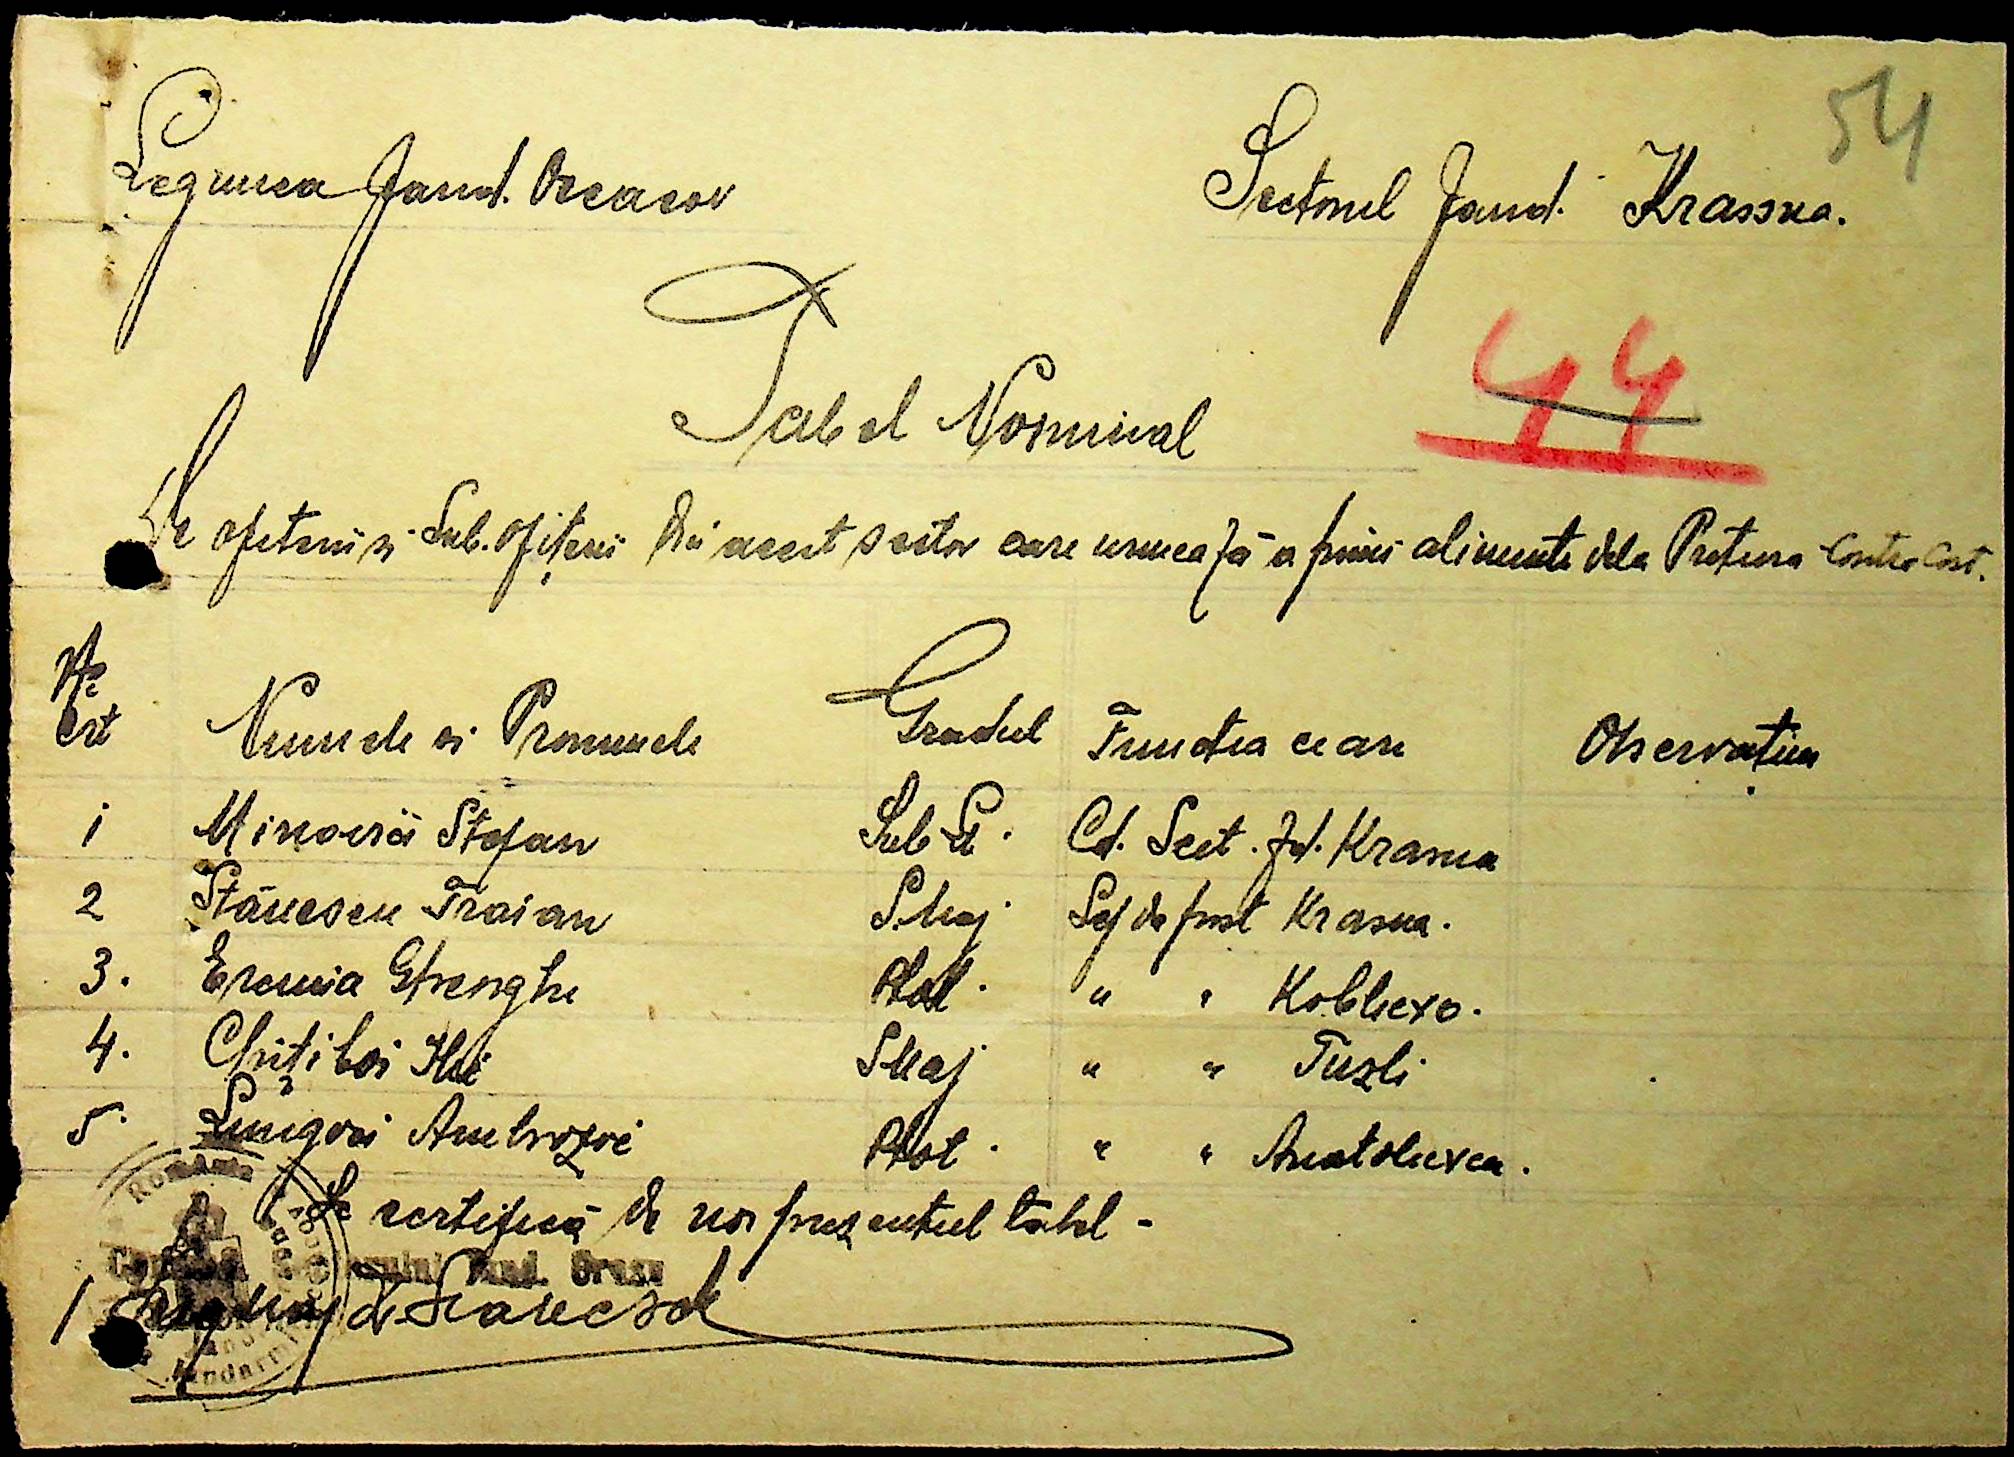 54
Legiunea Jand. Oceacov
Sectorul Jand. Krassna.
44
Tabel Nominal
De ofiteri si Sub.ofițeri din acest sector care urmează a primi alimente dela Pretura contra cost.
No
crt Numele si Pronumele Gradul Functia ce are Observatiuni
1 Stefan Sub Lt. Cd. Sect. Jd. Krasna
2 Stănescu Traian S.Maj. Sef de post Krasna.
3. Eremia Gheorghe Plot. " " Koblievo.
4. Chițiboi Ilie S Maj " " Tuzli
5. Ambrozie Plot. " " Anatolievca.
Se certifică de noi prezentul tabel -
România
Jand.